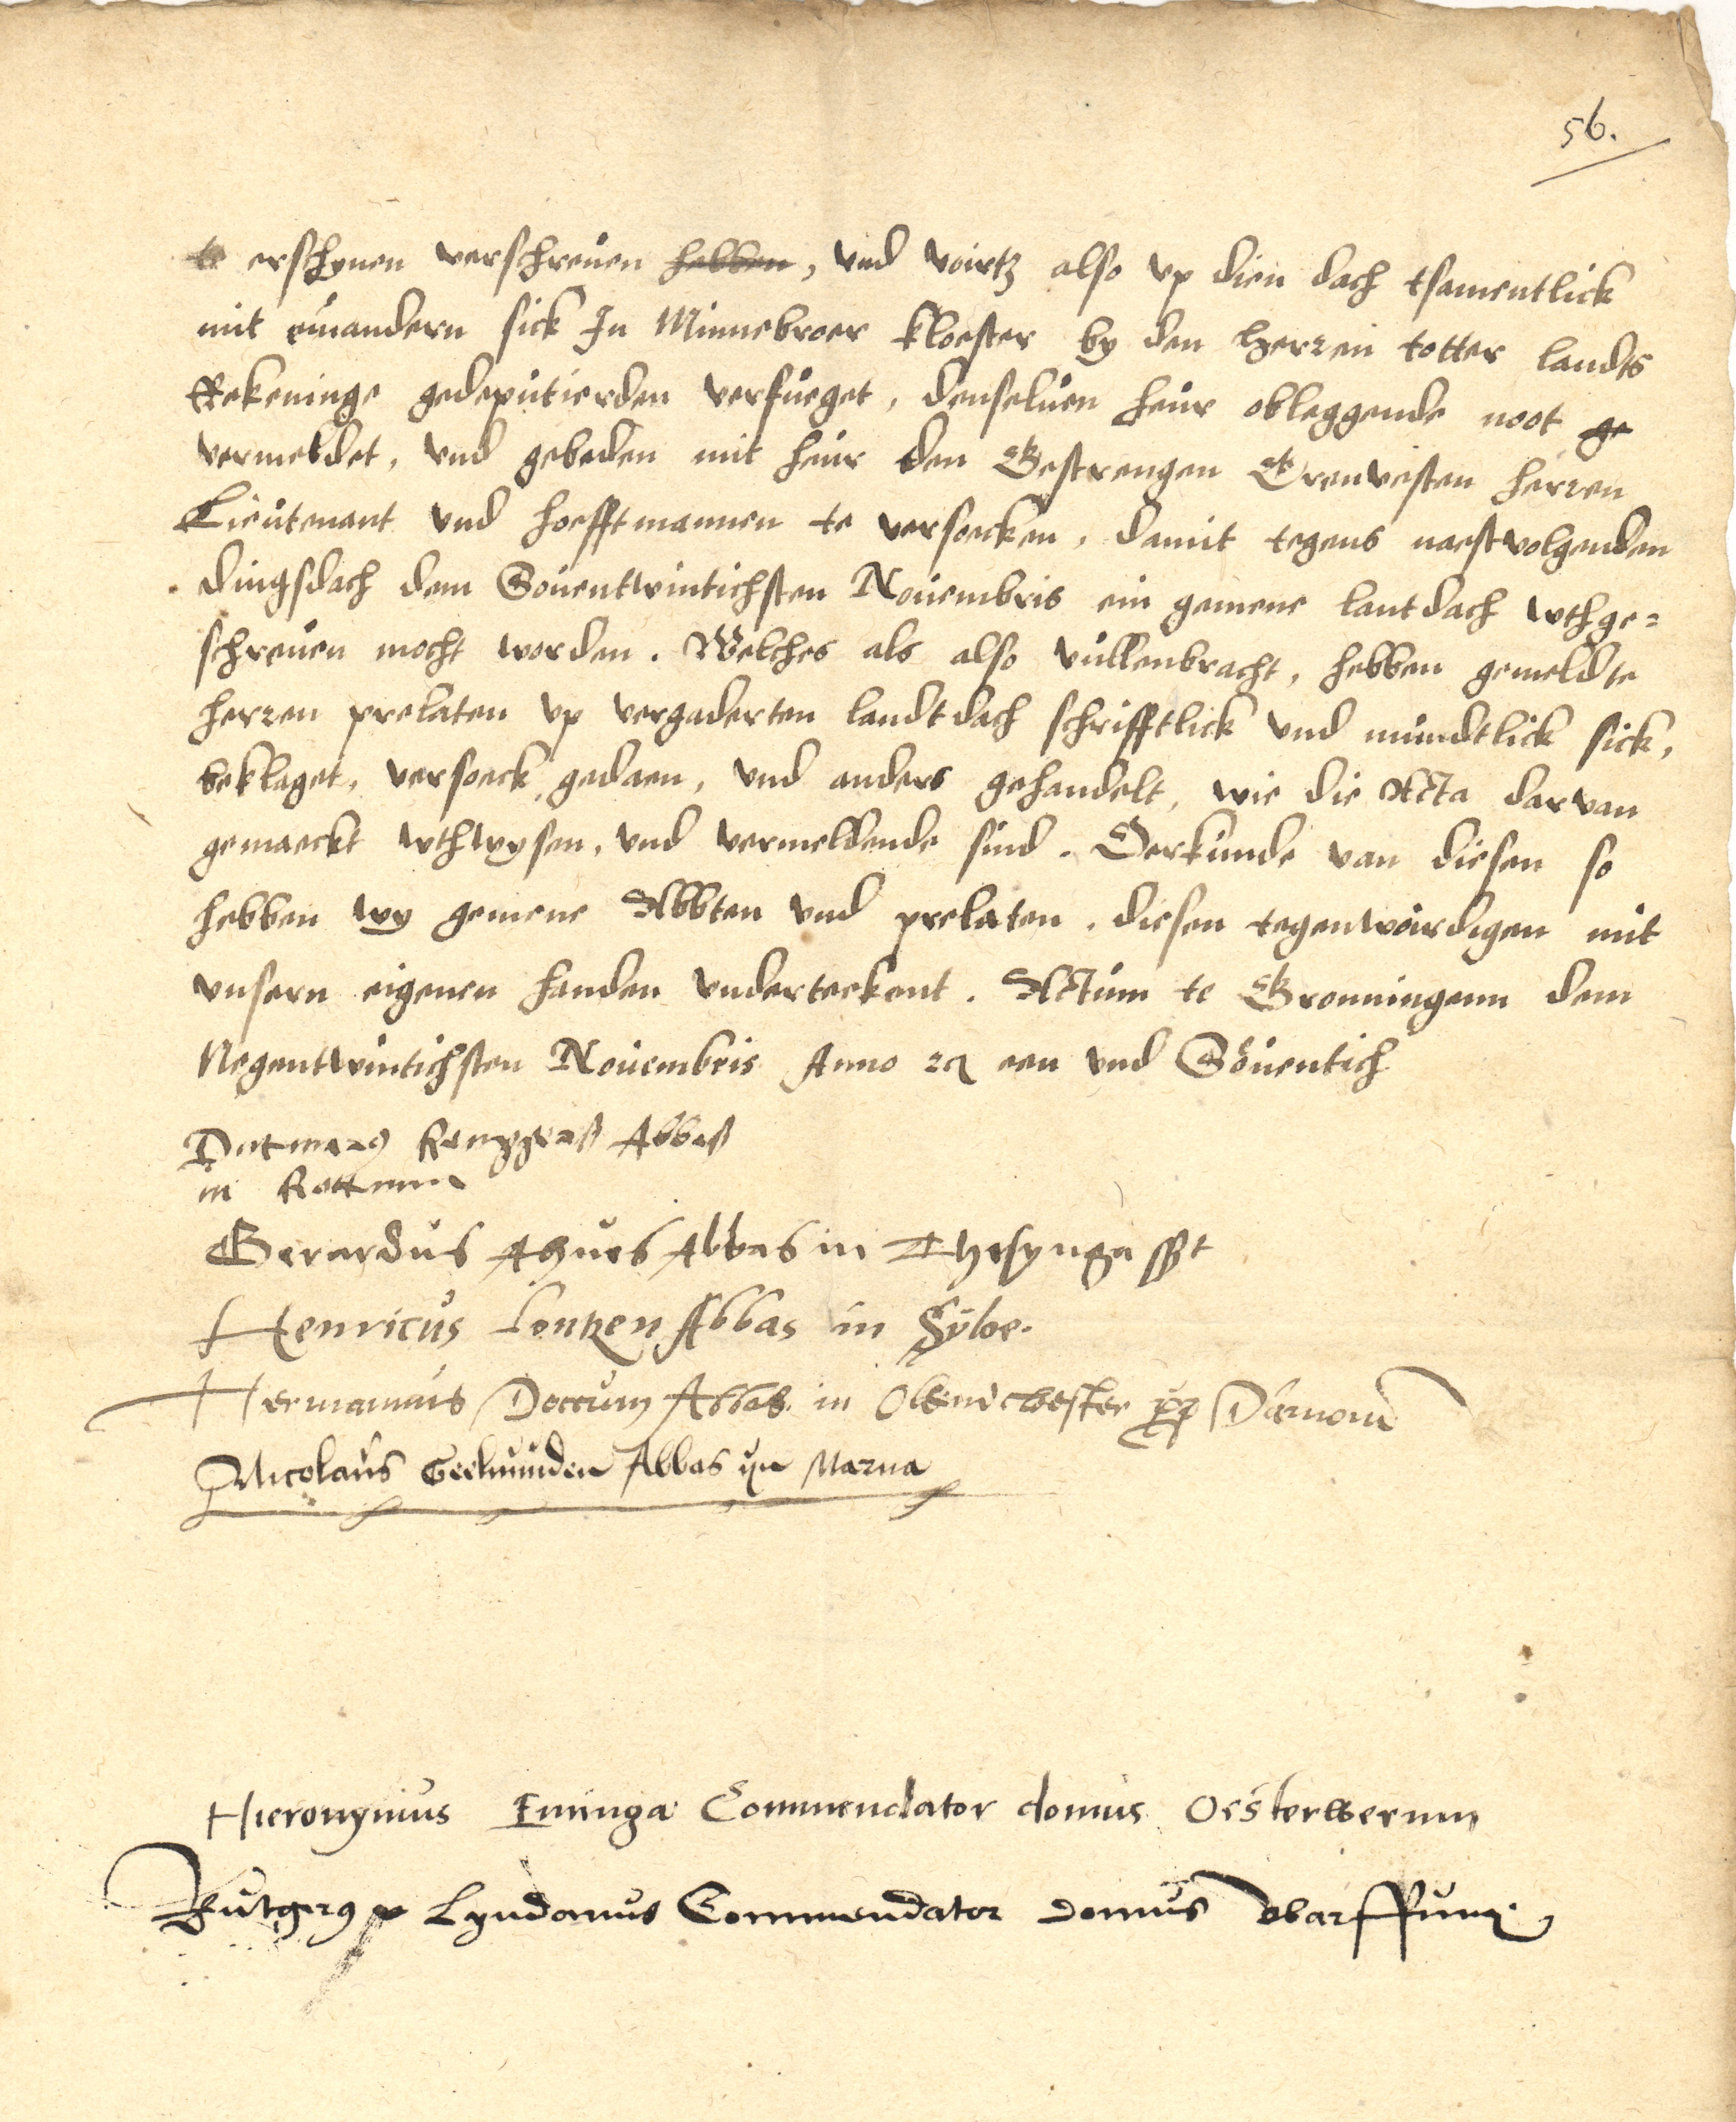 56.
te erschynen verschreuen hebben, vnd voirtz also vp dien dach tsamentlick
mit einandern sick In Minnebroer kloester by den herren totter landts
Rekeninge gedeputierden verfueget, denseluen heur obleggende noot ge
vermeldet, vnd gebeden mit heur den Gestrengen Erenvesten herren
Lieutenant vnd hoefftmannen te versoecken, damit tegens naestvolgenden
dingsdach dem Souentwintichsten Nouembris ein gemene lantdach wthge=
schreuen mocht worden. Welches als also vullenbracht, hebben gemeldte
herren prelaten vp vergaderten landtdach schrifftlick vnd mundtlick sick,
beklaget, versoeck gedaen, vnd anders gehandelt, wie die Acta darvan
gemaeckt wthwysen, vnd vermeldende sind. Oerkunde van diesen so
hebben wy gemene Abbten vnd prelaten, diesen tegenwoirdigen mit
vnsern eigenen handen vnderteekent. Actum te Gronningenn dem
Negentwintichsten Nouembris Anno etc een vnd Söuentich
Abbas
in Rottum
Gerardus Agues Abbas in Thesynga sszt
Henricus Lontzen Abbas in Syloe.
Hermannus Doccum Abbas in Oldencloester Damone
Nicolaus Geelmuiden Abbas yn Marna
Hieronymus Eminga Commendator domus Oesterwerum
Rutgerus Lyndanus Commendator domus Warffum